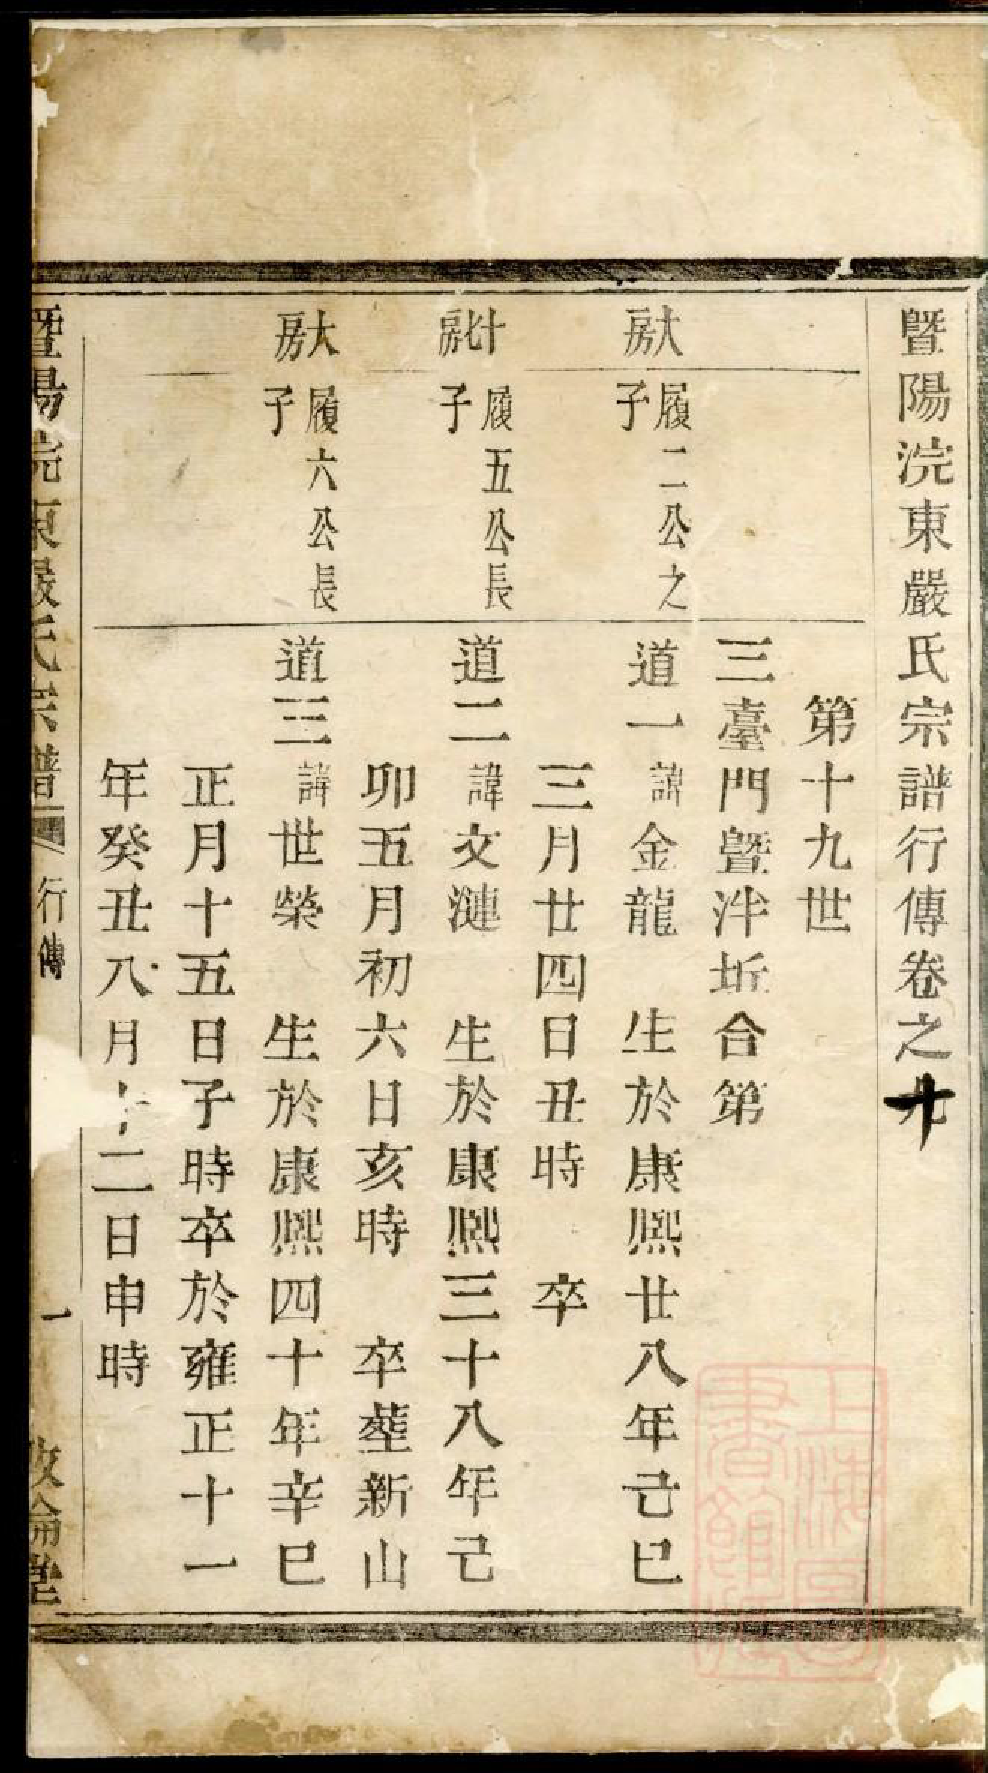 暨陽浣東嚴氏宗譜行傳卷之十
第十九世
三臺門暨泮坵合第
大房
履二公之子
道一 諱金龍 生於康熙廿八年己巳
三月廿四日丑時 卒
履五公長子
道二 諱文漣 生於康熙三十八年己
卯五月初六日亥時 卒塟新山
大房
履六公長子
道三 諱世榮 生於康熙四十年辛巳
正月十五日子時卒於雍正十一
年癸丑八月十二日申時
暨陽浣東嚴氏宗譜 行傳 一 敦倫堂
上海圖書館藏